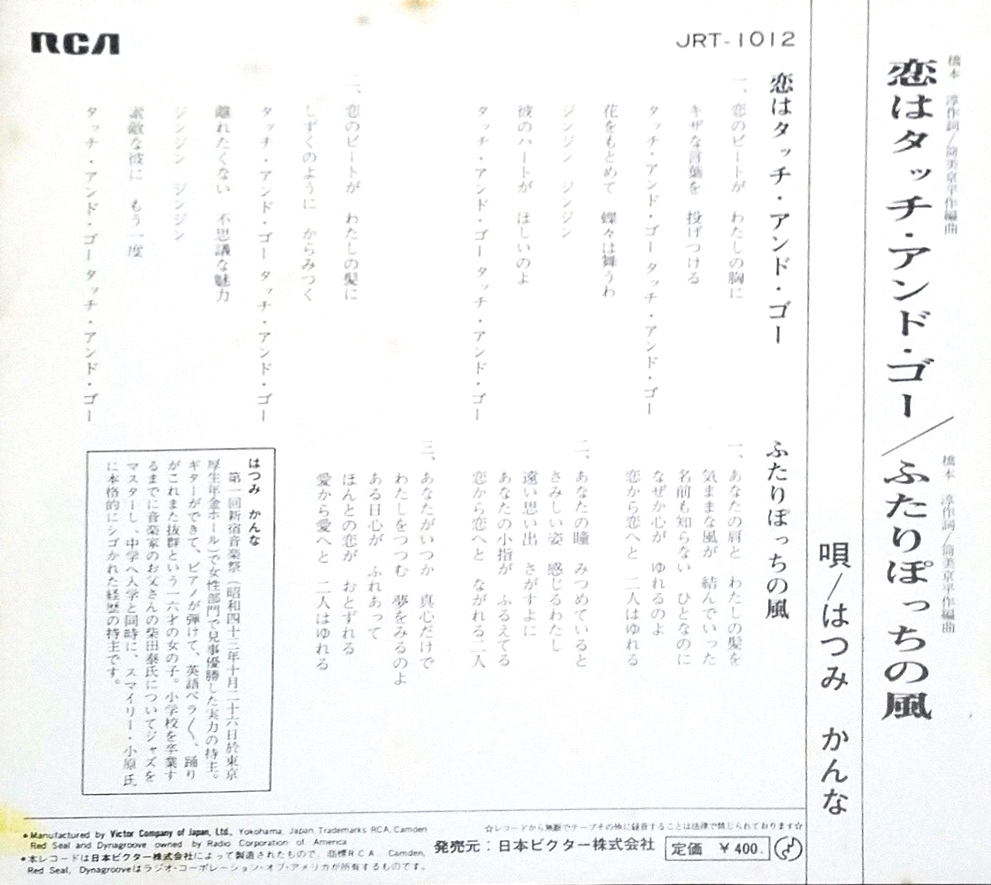 橋本 淳作詞/筒美京平作編曲
恋はタッチ・アンド・ゴー/ふたりぽっちの風
橋本 淳作詞/筒美京平作編曲
唄/はつみ かんな
RCA
JRT-1012
恋はタッチ・アンド・ゴー
一、恋のビートが わたしの胸に
キザな言葉を 投げつける
タッチ・アンド・ゴー タッチ・アンド・ゴー
花をもとめて 蝶々は舞うわ
ジンジン ジンジン
彼のハートが ほしいのよ
タッチ・アンド・ゴー タッチ・アンド・ゴー
二、恋のビートが わたしの髪に
しずくのように からみつく
タッチ・アンド・ゴー タッチ・アンド・ゴー
離れたくない 不思議な魅力
ジンジン ジンジン
素敵な彼に もう一度
タッチ・アンド・ゴー タッチ・アンド・ゴー
ふたりぽっちの風
一、あなたの肩と わたしの髪を
気ままな風が 結んでいった
名前も知らない ひとなのに
なぜか心が ゆれるのよ
恋から恋へと 二人はゆれる
二、あなたの瞳 みつめていると
さみしい姿 感じるわたし
遠い思い出 さがすよに
あなたの小指が ふるえてる
恋から恋へと ながれる二人
三、あなたがいつか 真心だけで
わたしをつつむ 夢をみるのよ
ある日心が ふれあって
ほんとの恋が おとずれる
愛から愛へと 二人はゆれる
はつみ かんな
第一回新宿音楽祭(昭和四十三年十月二十六日於東京
厚生年金ホール)で女性部門で見事優勝した実力の持主。
ギターができて、ピアノが弾けて、英語ペラ〱、踊り
がこれまた抜群という一六才の女の子。小学校を卒業す
るまでに音楽家のお父さんの柴田泰氏についてジャズを
マスターし、中学へ入学と同時に、スマイリー・小原氏
に本格的にシゴかれた経歴の持主です。
☆レコードから無断でテープその他に録音することは法律で禁じられております☆
●Manufactured by Victor Company of Japan, Ltd., Yokohama, Japan. Trademarks RCA, Camden
Red Seal and Dynagroove owned by Radio Corporation of America
●本レコードは日本ビクター株式会社によって製造されたもので、商標RCA, Camden,
Red Seal, Dynagrooveはラジオ・コーポレーション・オブ・アメリカが所有するものです。
発売元:日本ビクター株式会社
定価 ￥400.